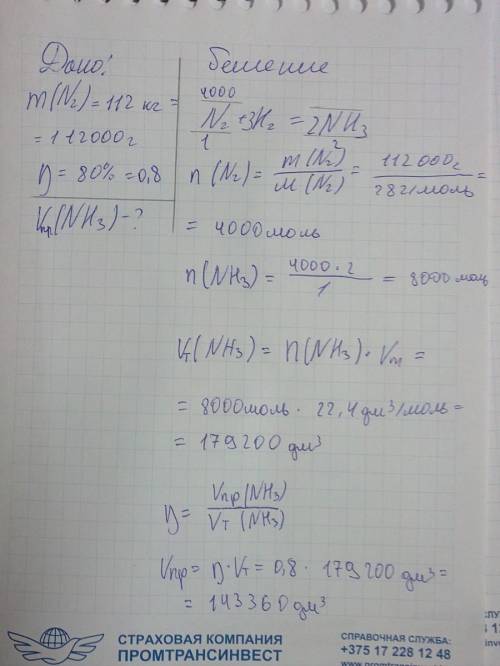 Дано:
m(N₂) = 112 кг =
= 112000г
η = 80% = 0,8
Vпр.(NH₃) - ?
Решение
4000
N₂ + 3H₂ = 2NH₃
1 2
n(N₂) = m(N₂) / M(N₂) = 112 000г / 28г/моль =
= 4000моль
n(NH₃) = 4000·2 / 1 = 8000 моль
Vт(NH₃) = n(NH₃)·Vm =
= 8000моль · 22,4дм³/моль =
= 179200 дм³
η = Vпр(NH₃) / Vт(NH₃)
Vпр = η·Vт = 0,8 · 179200 дм³ =
= 143360 дм³
СТРАХОВАЯ КОМПАНИЯ
ПРОМТРАНСИНВЕСТ
СПРАВОЧНАЯ СЛУЖБА:
+375 17 228 12 48